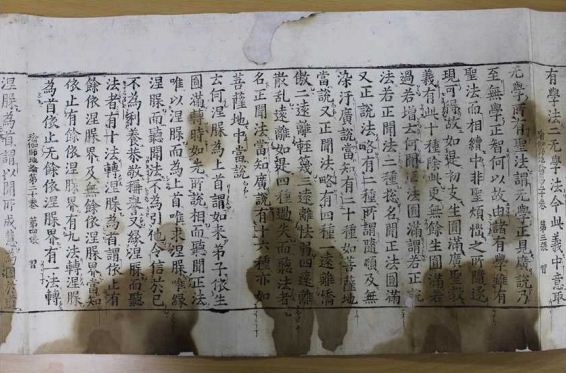 有學法二无學法今此義中意取
瑜伽師地論二十卷 第三張 習
无學所有聖法謂无學正見廣說乃
至無學正智何以故由諸有學雖有
聖法而相續中非聖煩惱之所隨逐
現可得故如是初支生圓滿廣聖教
義有此十種除此更無餘生圓滿若
過若增云何聞正法圓滿謂若正說
法若正聞法二種揔名聞正法圓滿
又正說法略有二種所謂隨順及無
染汙廣說當知有二十種如菩薩地
當說又正聞法略有四種一遠離憍
傲二遠離輕蔑三遠離怯弱四遠離
散乱遠離如是四種過失而聽法者
名正聞法當知廣說有十六種亦如
菩薩地中當說
云何涅槃為上首謂如來弟子依生
圓滿轉時如先所說相而聽聞正法
唯以涅槃而為上首唯求涅槃唯緣
涅槃而聽聞法不為引他令信於己
不為利養恭敬稱譽又緣涅槃而聽
法者有十法轉涅槃為首謂依止有
餘依涅槃界及無餘依涅槃界當知
依止有餘依涅槃界有九法轉涅槃
為首依止无餘依涅槃界有一法轉
瑜伽師地論二十卷 第四張 習
涅槃為首謂以聞所成慧為因於